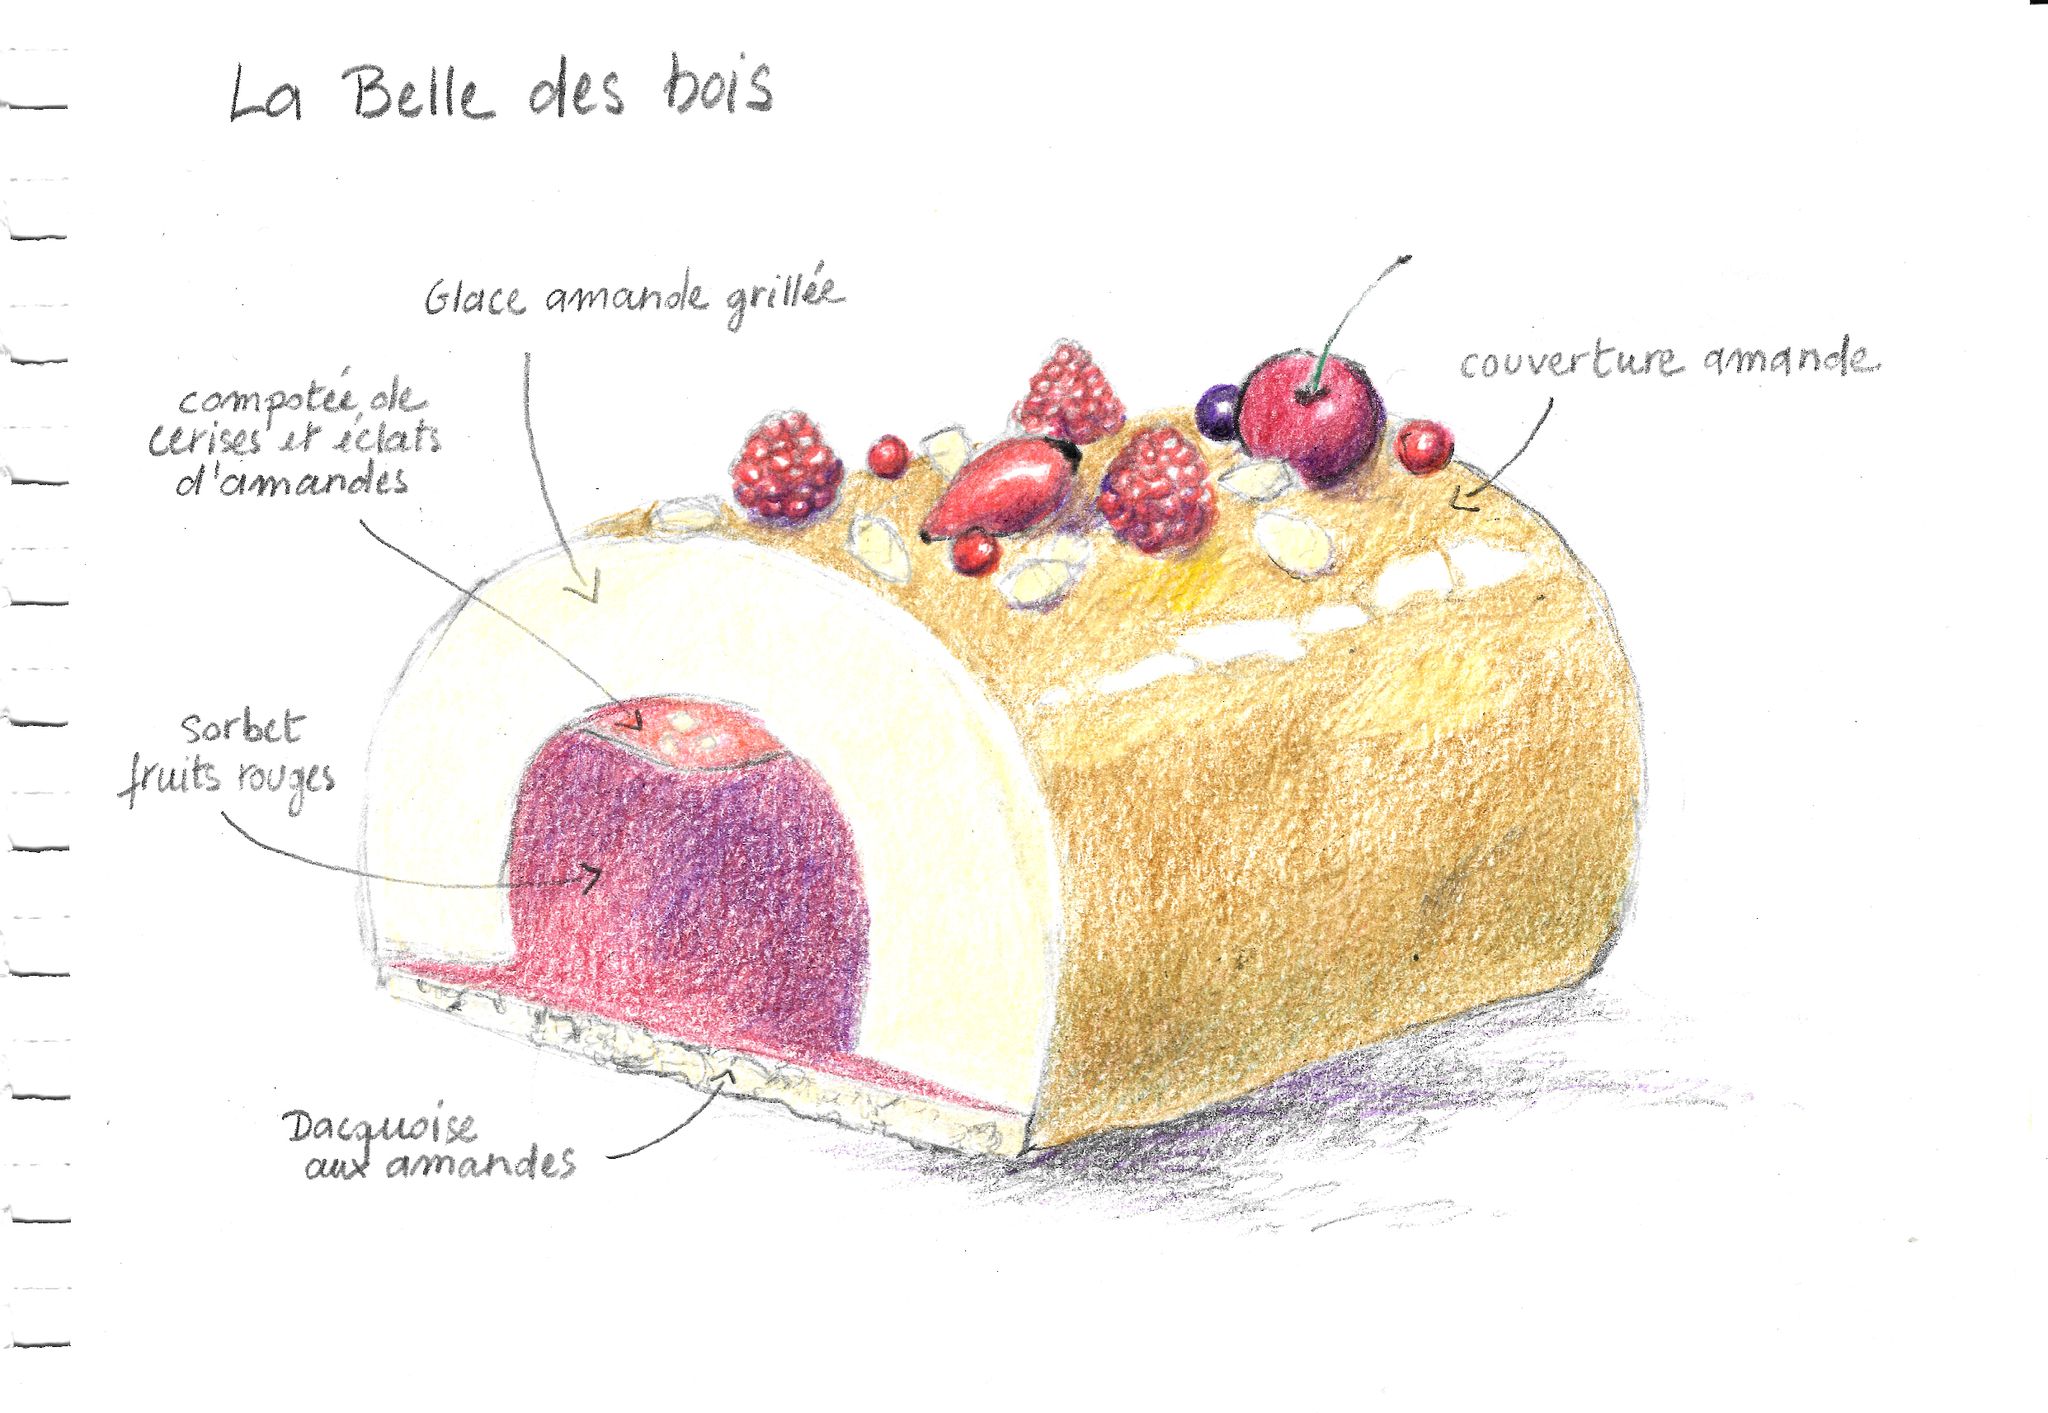 La Belle des bois
Glace amande grillée
couverture amande
compotée de
cerises et éclats
d'amandes
sorbet
fruits rouges
Dacquoise
aux amandes